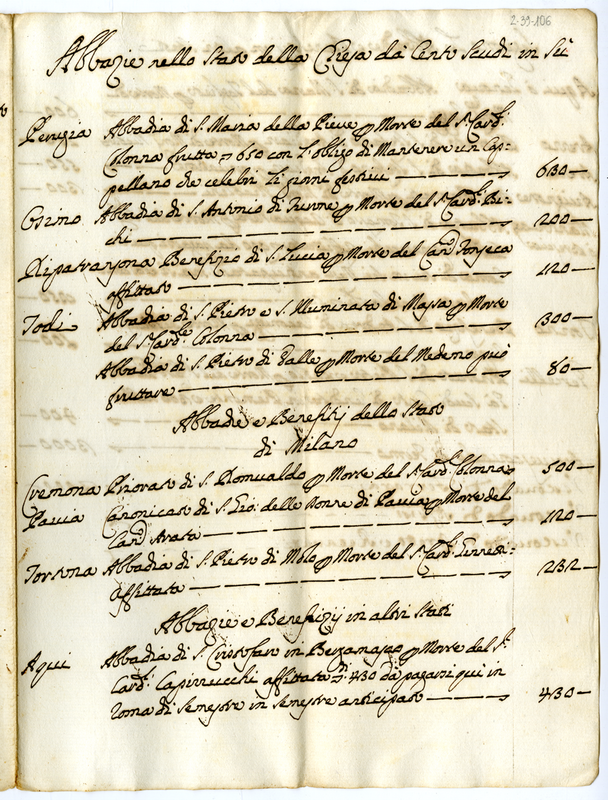 2-39-106
Abbazie nello Stato della Chiesa da Cento Scudi in Sù
Perugia Abbadia di S. Maria della Pieve p Morte del S.r Card.l
Colonna frutta 650 con l'obligo di Mantenere un Cap=
pellano che celebri li giorni festivi 630
Osimo Abbadia di S. Antonio di Morte del S.r Card.l Bi=
chi 200
Ripatransona Benefizio di S. Lucia p Morte del Card. Fonseca
affittato 120
Todi Abbadia di S. Pietro e S. Illuminata di Massa p Morte
del S.r Card.le Colonna 300
Abbadia di S. Pietro di Valle p Morte del Medemo può
fruttare 80
Abbadie e Benefitij dello Stato
di Milano
Cremona Priorato di S. Romualdo p Morte del S.r Card.l Colonna 500
Pavia Canonicato di S. Gio: delle Donne di Pavia p Morte del
Card. 120
Tortona Abbadia di S. Pietro di Molo p Morte del S.r Card.l
affittata 232
Abbazie e Benefizij in altri Stati
Aqui Abbadia di S. Cristofaro in Bergamasco p Morte del S.r
Card.l Capizucchi affittata 430 da pagarsi qui in
Roma di Semestre in Semestre anticipato 430